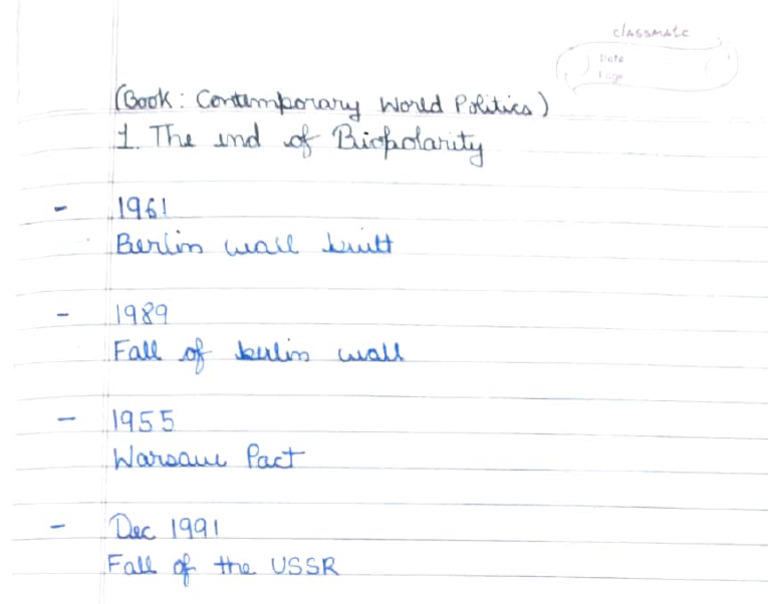 classmate
Date
Page
(Book: Contemporary World Politics)
1. The end of Biopolarity
- 1961
Berlin wall built
- 1989
Fall of berlin wall
- 1955
Warsaw Pact
- Dec 1991
Fall of the USSR